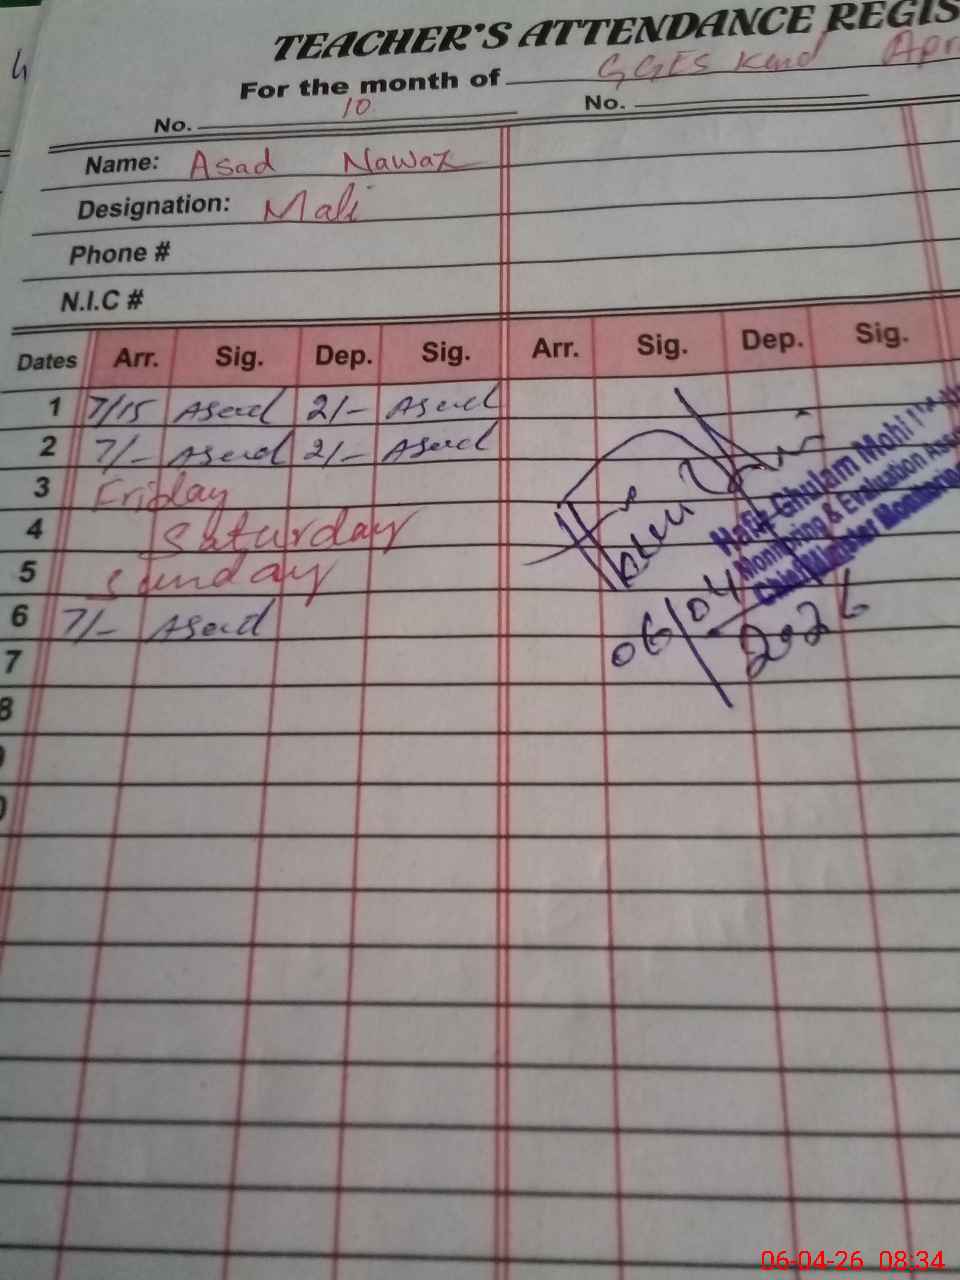 TEACHER'S ATTENDANCE REGIS
For the month of GGES Kand Apr
No. 10 No.
Name: Asad Nawaz
Designation: Mali
Phone #
N.I.C #
Dates Arr. Sig. Dep. Sig. Arr. Sig. Dep. Sig.
1 7/15 Asad 2/- Asad
2 7/- Asad 2/- Asad
3 Friday
4 Saturday
5 Sunday
6 7/- Asad
7
8
Hafiz Ghulam Mohi
Monitoring & Evaluation Ass
Chief Minister Monitoring
06/04/2026
06-04-26 08:34